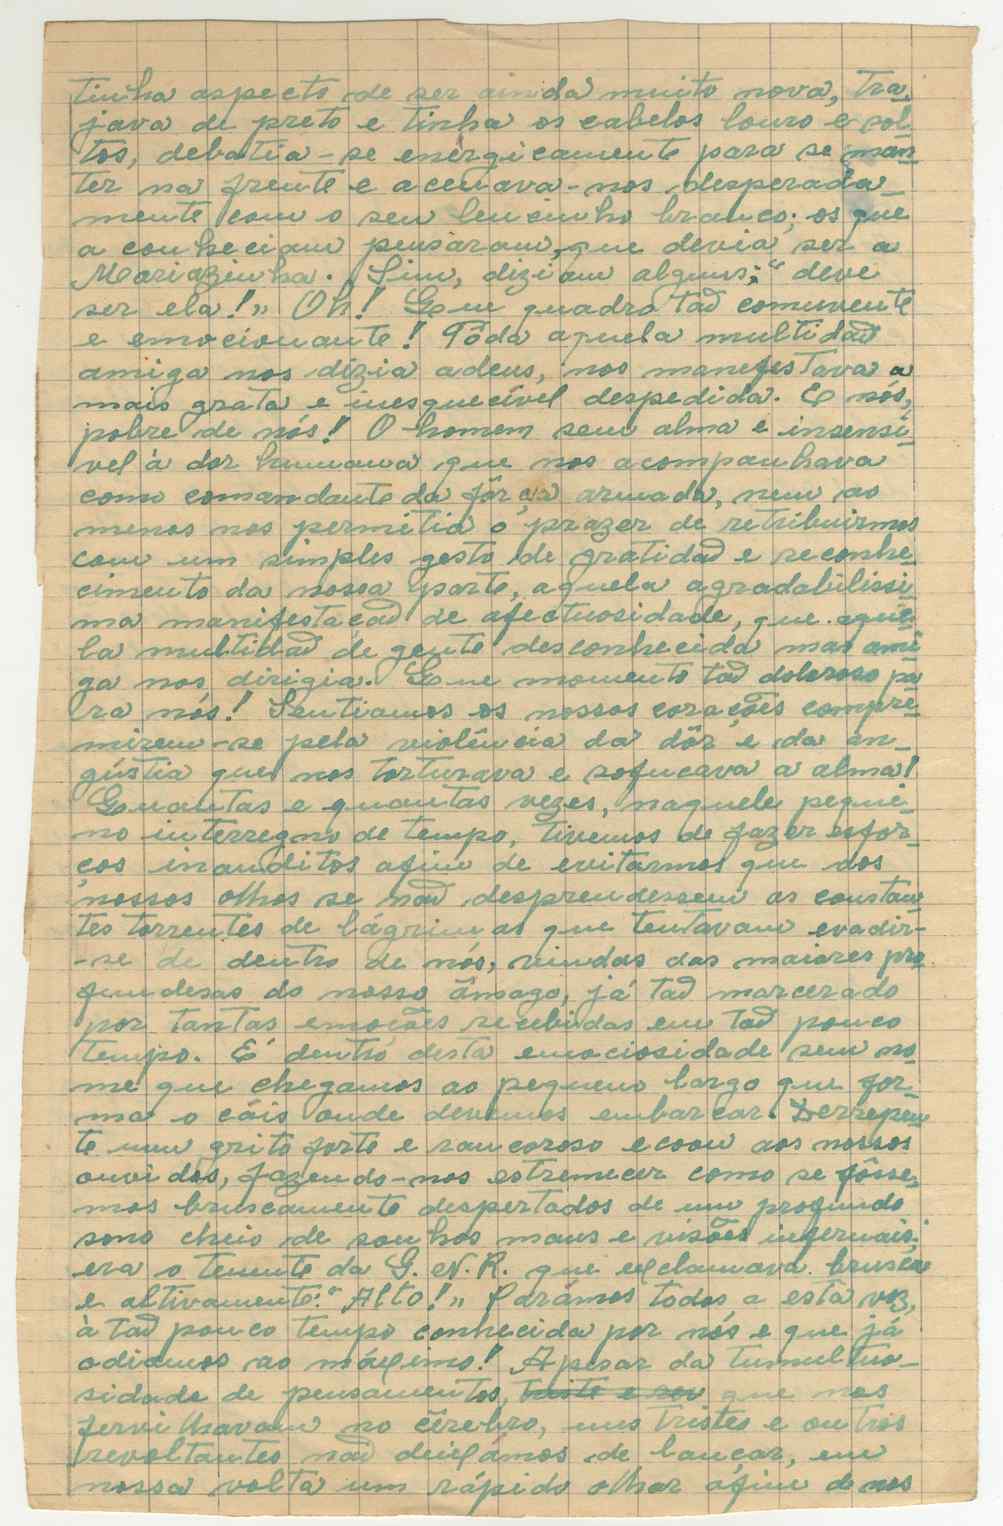 tinha aspecto de ser ainda muito nova, tra-
java de preto e tinha os cabelos louro e sol-
tos, debatia-se enérgicamente para se man-
ter na frente e acenava-nos desperada-
mente com o seu lencinho branco; os que
a conheciam pensaram, que devia ser a
Mariazinha. Sim, diziam alguns; "deve
ser ela!" Oh! Que quadro tão comuvente
e emocionante! Tôda aquela multidão
amiga nos dizia adeus, nos manefestava a
mais grata e inesquecível despedida. E nós,
pobre de nós! O homem sem alma e insensí-
vel à dor humana que nos acompanhava
como comandante da fôrça armada, nem ao
menos nos permitia o prazer de retribuirmos
com um simples gesto de gratidão e reconhe-
cimento da nossa parte, aquela agradabilíssi-
ma manifestação de afectuosidade, que aque-
la multidão de gente desconhecida mas ami-
ga nos dirigia. Que momento tão doloroso pa-
ra nós! Sentiamos os nossos corações compri-
mirem-se pela violência da dôr e da an-
gústia que nos torturava e sofucava a alma!
Quantas e quantas vezes, naquele peque-
no interregno de tempo, tivemos de fazer esfor-
ços inauditos afim de evitarmos que dos
nossos olhos se não desprendessem as constan-
tes torrentes de lágrimas que tentavam evadir-
-se de dentro de nós, vindas das maiores pro-
fundesas do nosso âmago, já tão marcerado
por tantas emoções recebidas em tão pouco
tempo. E' dentro desta emociosidade sem no-
me que chegamos ao pequeno largo que for-
ma o cáis onde devemos embarcar. Derrepen-
te um grito forte e rancoroso ecoou aos nossos
ouvidos, fazendo-nos estremecer como se fôsse-
mos bruscamente despertados de um profundo
sono cheio de sonhos maus e visões infernais;
era o tenente da G. N. R. que exclamava brusca
e altivamente: "Alto!" Parámos todos a esta voz,
à tão pouco tempo conhecida por nós e que já
odiamos ao máximo! Apesar da tumultuo-
sidade de pensamentos, que nos
fervilhavam no cérebro, uns tristes e outros
revoltantes não deixámos de lançar, em
nossa volta um rápido olhar afim de nos